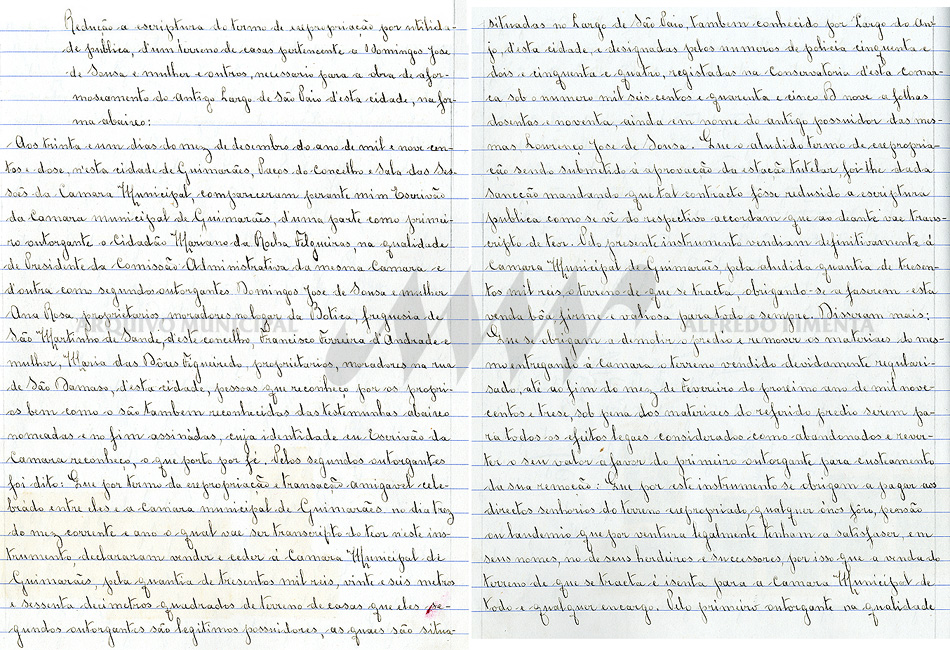 Redução a escriptura do termo de expropriação por utilida-
de publica, d'um terreno de casas pertencente a Domingos José
de Sousa e mulher e outros, necessario para a obra de afor-
moseamento do Antigo Largo de São Paio d'esta cidade, na for-
ma abaixo:
Aos trinta e um dias do mez de desembro do ano de mil e nove cen-
tos e dose, n'esta cidade de Guimarães, Paços do Concelho e Sala das Ses-
sões da Camara Municipal, compareceram perante mim Escrivão
da Camara municipal de Guimarães, d'uma parte como primei-
ro outorgante o Cidadão Mariano da Rocha Felgueiras, na qualidade
de Presidente da Comissão Administrativa da mesma Camara e
d'outra como segundos outorgantes Domingos José de Sousa e mulher
Ana Rosa, proprietarios, moradores no logar da Botica, freguesia de
São Martinho de Sande, d'este concelho, Francisco Ferreira d'Andrade e
mulher, Maria das Dôres Figueiredo, proprietarios, moradores na rua
de São Damaso, d'esta cidade, pessoas que reconheço por os propri-
os bem como o são tambem reconhecidos das testmunhas abaixo
nomeadas e no fim assinadas, cuja identidade eu Escrivão da
Camara reconheço, o que porto por fé. Pelos segundos outorgantes
foi dito: Que por termo de expropriação e transação amigavel cele-
brado entre eles e a Camara municipal de Guimarães no dia trez
do mez corrente e ano o qual vae ser transcripto do teor n'este ins-
trumento, declararam vender e ceder á Camara Municipal de
Guimarães, pela quantia de tresentos mil reis, vinte e seis metros
e sessenta decimetros quadrados de terreno de casas que eles se-
gundos outorgantes são legitimos possuidores, as quaes são situa-
sitiradas no Largo de São Paio, tambem conhecido por Largo do An-
jo, d'esta cidade, e designadas pelos numeros de policia cinquenta e
dois e cinquenta e quatro, registadas na Conservatoria d'esta comar-
ca sob o numero mil seis centos e quarenta e cinco B nove a folhas
dosentas e noventa, ainda em nome do antigo possuidor das mes-
mas Lourenço José de Sousa. Que o aludido termo de expropria-
ção sendo submetido á aprovação da estação tutelar, foi-lhe dada
sancção mandando que tal contracto fôsse redusido a escriptura
publica como se vê do respectivo accordam que ao deante vae trans-
cripto de teor. Pelo presente instrumento vendiam definitivamente á
Camara Municipal de Guimarães pela aludida quantia de tresen-
tos mil reis, o terreno de que se tracta, obrigando-se a faserem esta
venda bôa, firme e valiosa para todo sempre. Disseram mais:
Que se obrigam a demolir o predio e remover os materiaes do mes-
mo e entregando á camara o terreno vendido devidamente regulari-
sado, até ao fim do mez de Fevereiro do proximo ano de mil nove-
centos e trese, sob pena dos materiaes do referido predio serem pa-
ra todos os efeitos legaes considerados como abandonados e rever-
ter o seu valor a favor do primeiro outorgante para custeamento
da sua remoção: Que por este instrumento se obrigam a pagar aos
directos senhorios do terreno expropriado, qualquer onus, fôro, pensão
ou laudemio que por ventura legalmente tenham a satisfaser, em
seus nomes, no de seus herdeiros e successores, por isso que a venda do
terreno de que se tracta é isenta para a Camara Municipal de
todo e qualquer encargo. Pelo primeiro outorgante na qualidade
ARQUIVO MUNICIPAL ALFREDO PIMENTA